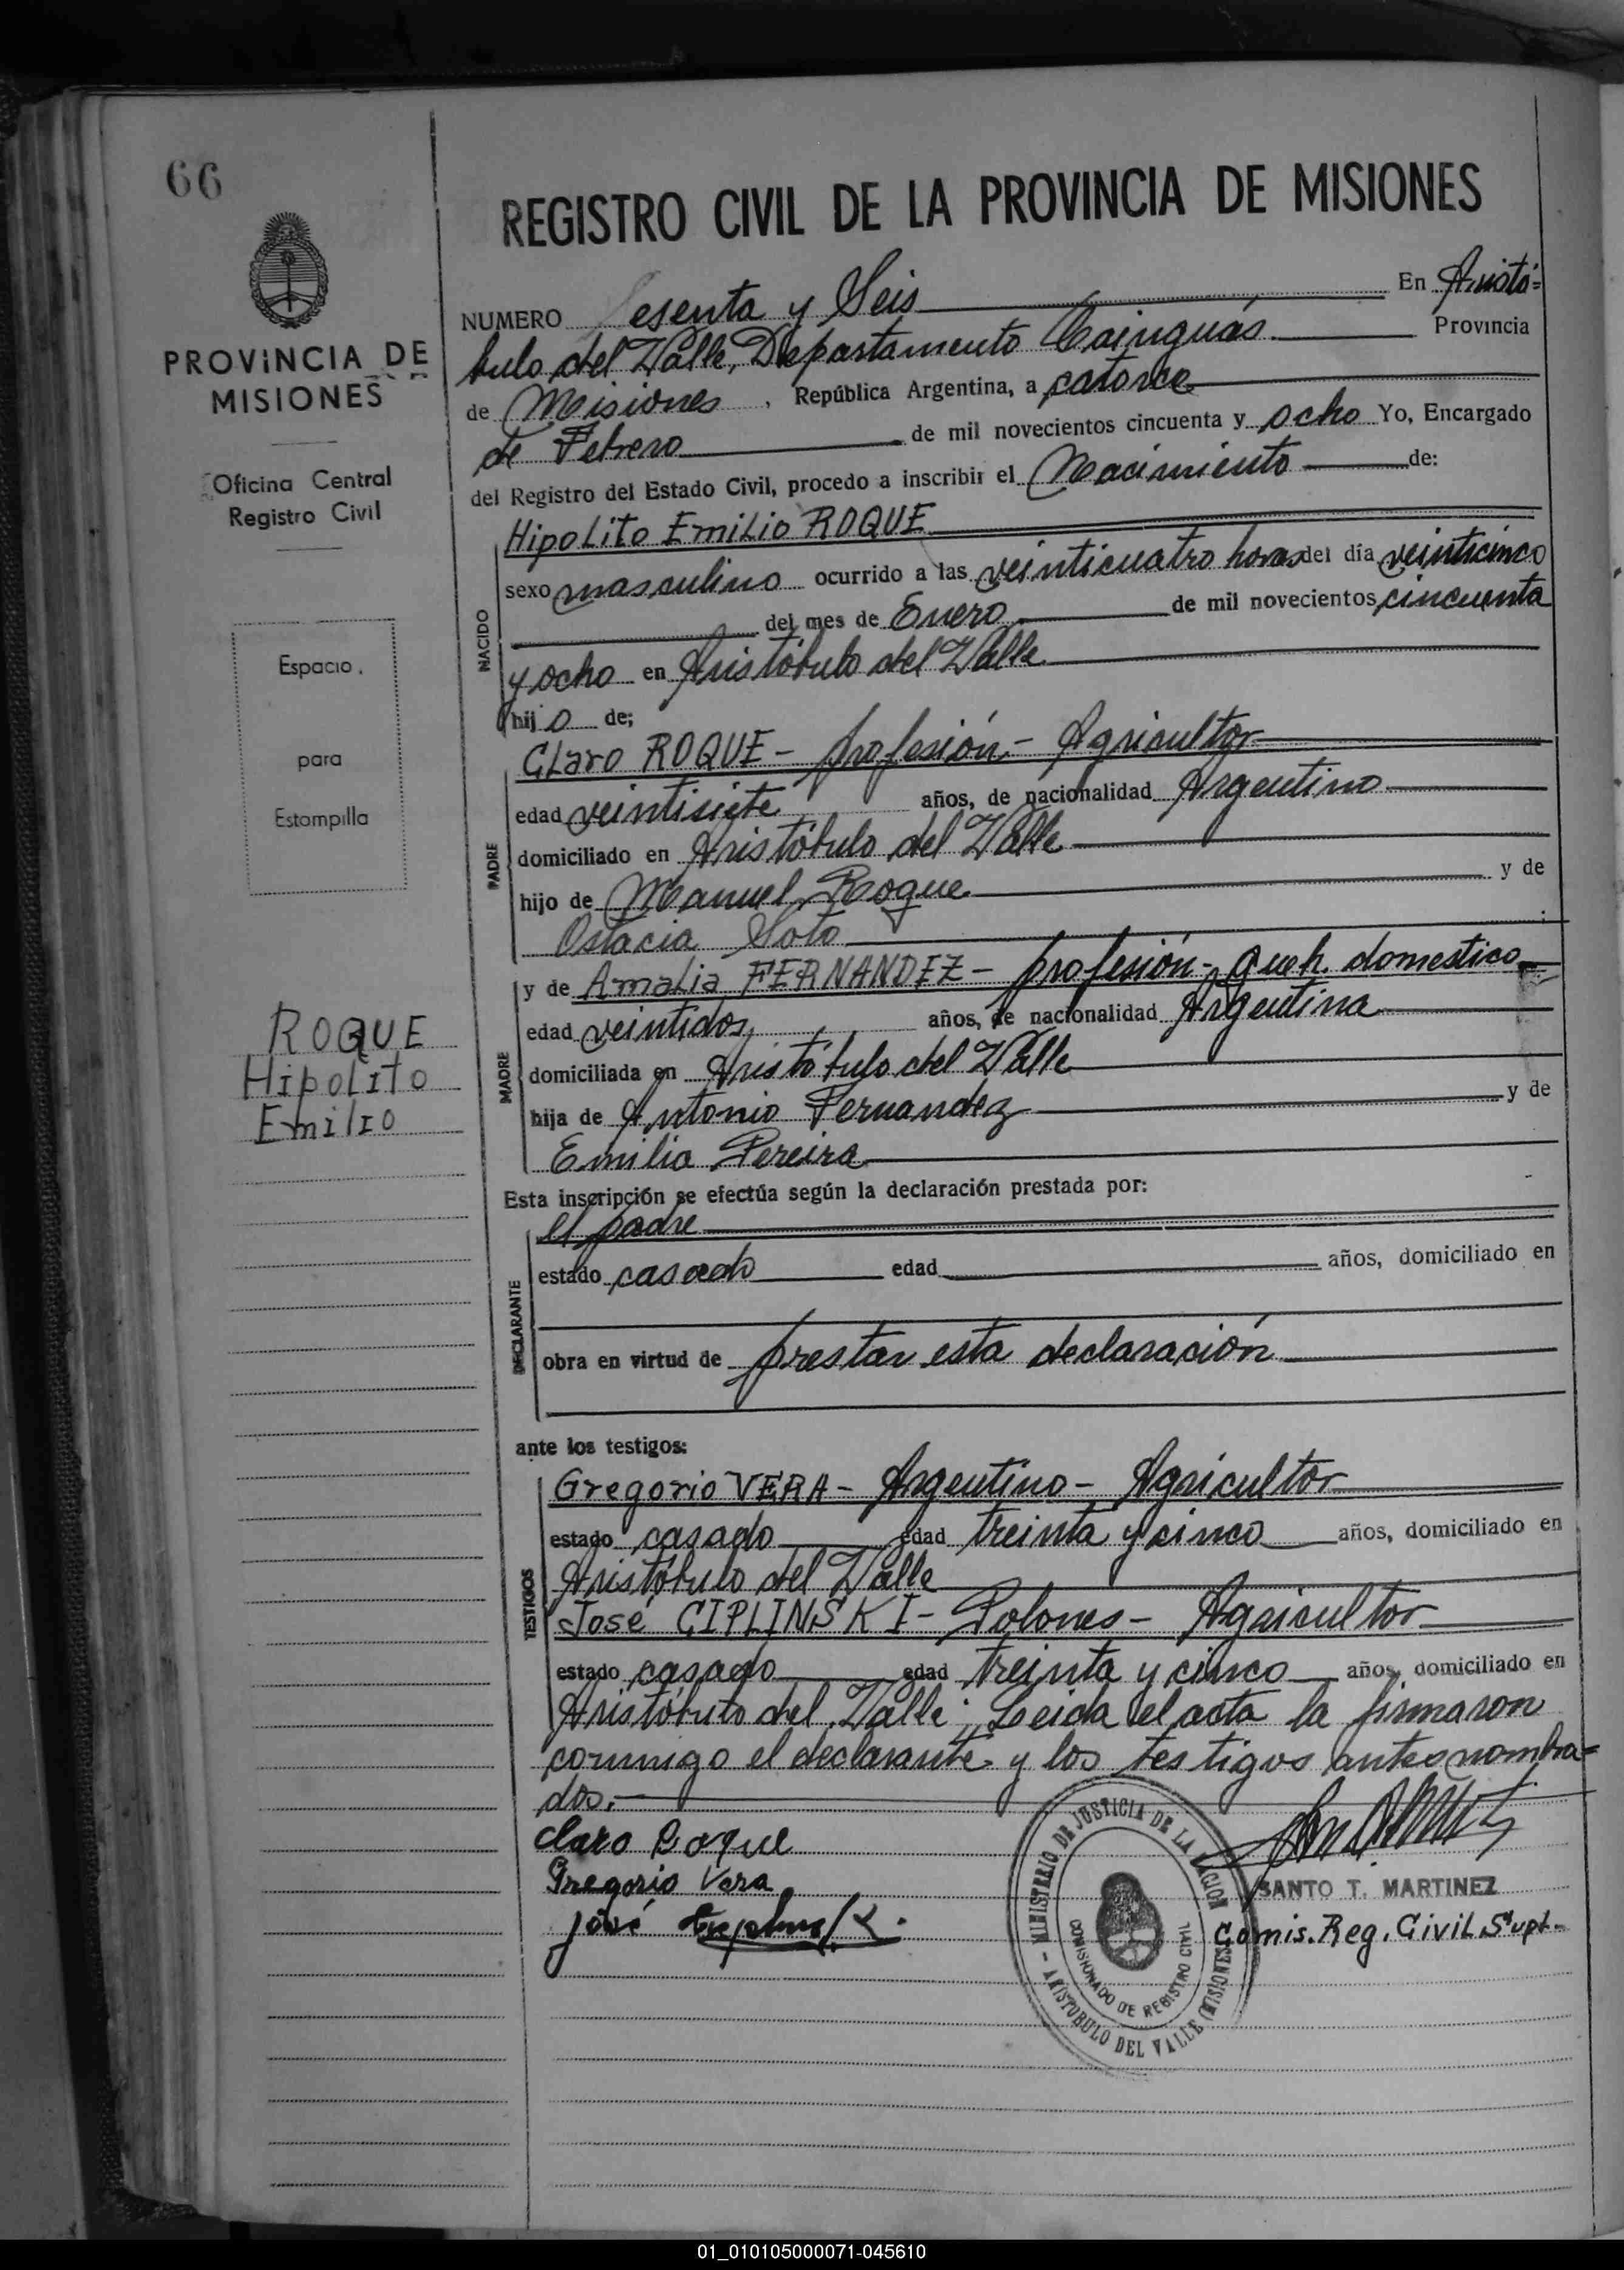 66
PROVINCIA DE
MISIONES
Oficina Central
Registro Civil
Espacio
para
Estampilla
ROQUE
Hipolito
Emilio
REGISTRO CIVIL DE LA PROVINCIA DE MISIONES
NUMERO Sesenta y Seis En Aristó=
bulo del Valle, Departamento Cainguás Provincia
de Misiones, República Argentina, a catorce
de Febrero de mil novecientos cincuenta y ocho Yo, Encargado
del Registro del Estado Civil, procedo a inscribir el Nacimiento de:
NACIDO
Hipolito Emilio ROQUE
sexo masculino ocurrido a las veinticuatro horas del día veinticinco
del mes de Enero de mil novecientos cincuenta
y ocho en Aristóbulo del Valle
hijo de;
PADRE
Claro ROQUE - profesión - Agricultor
edad veintisiete años, de nacionalidad Argentino
domiciliado en Aristóbulo del Valle
hijo de Manuel Roque y de
Ostacia Soto
MADRE
y de Amalia FERNANDEZ - profesión - queh. domestico
edad veintidos años, de nacionalidad Argentina
domiciliada en Aristóbulo del Valle
hija de Antonio Fernandez y de
Emilia Pereira
Esta inscripción se efectúa según la declaración prestada por:
DECLARANTE
el padre
estado casado edad años, domiciliado en
obra en virtud de prestar esta declaración
ante los testigos:
TESTIGOS
Gregorio VERA - Argentino - Agricultor
estado casado edad treinta y cinco años, domiciliado en
Aristóbulo del Valle
José CIPLINSKI - Polones - Agricultor
estado casado edad treinta y cinco años, domiciliado en
Aristóbulo del Valle; Leida el acta la firmaron
conmigo el declarante y los testigos antes nombra=
dos.
Claro Roque
Gregorio Vera
José
MINISTERIO DE JUSTICIA DE LA NACION
COMISIONADO DE REGISTRO CIVIL
ARISTOBULO DEL VALLE (MISIONES)
SANTO T. MARTINEZ
Comis. Reg. Civil Supt.
01_010105000071-045610